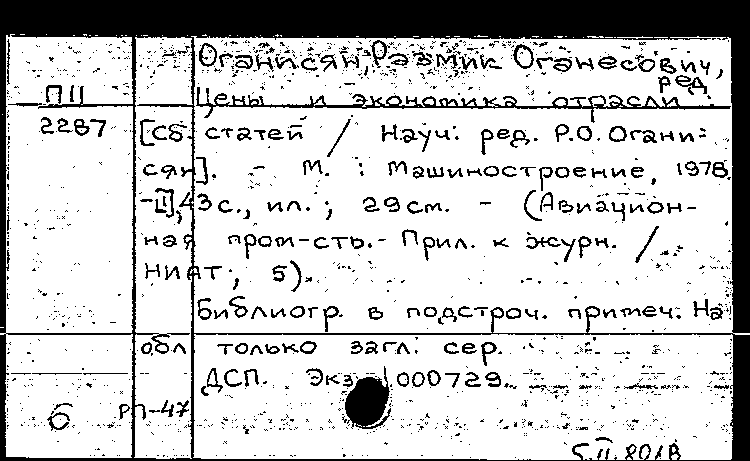 Оганисян, Размик Оганесович,
ред.
П11 Цены и экономика отрасли :
2287 [Сб. статей / Науч. ред. Р.О. Огани-
сян]. - М. : Машиностроение, 1978.
-[1], 43 с., ил. ; 29 см. - (Авиацион-
ная пром-сть. - Прил. к журн. /
НИАТ ; 5).
Библиогр. в подстроч. примеч. На
обл. только загл. сер.
ДСП. Экз. 000729.
б РП-47
5.II.80